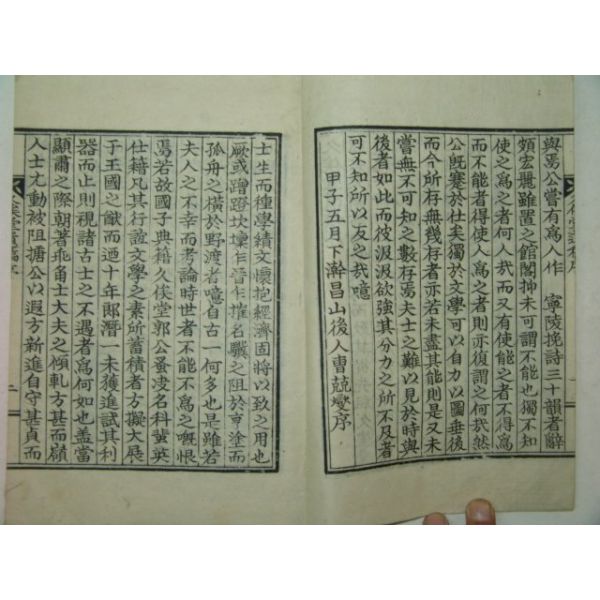 與焉公嘗有爲人作 寧陵挽詩三十韻者辭
頗宏麗雖置之館閣抑未可謂不能也獨不知
使之爲之者何人哉而又有使能之者不得爲
而不能者得使人爲之者則亦復謂之何哉然
公旣蹇於仕矣獨於文學可以自力以圖垂後
而今所存無幾存者亦若未盡其能則是又未
嘗無不可知之數存焉夫士之難以見於時與
後者如此而彼汲汲欲強其分力之所不及者
可不知所以友之哉噫
甲子五月下澣昌山後人曺兢燮序
士生而種學績文懷抱經濟固將以致之用也
厥或蹭蹬坎壈乍晉乍摧名驥之阻於亨塗而
孤舟之橫於野渡者噫自古一何多也是雖若
夫人之不幸而考論時世者不能不爲之嘅恨
焉若故國子典籍久俟堂郭公蚤凌名科蜚英
仕籍凡其行誼文學之素所蓄積者方擬大展
于王國之猷而迺十年郎潛一未獲進試其利
器而止則視諸古士之不遇者爲何如也盖當
顯肅之際朝著乖角士大夫之傾軋方甚而嶺
人士尤動被阻搪公以遐方新進自守甚貞而